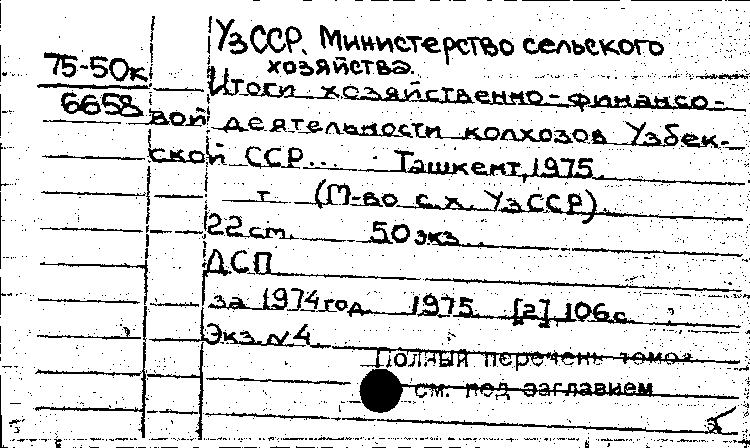 УзССР. Министерство сельского
хозяйства.
75-50к
6658
Итоги хозяйственно-финансо-
вой деятельности колхозов Узбек-
ской ССР... Ташкент, 1975.
т. (М-во с.х. УзССР).
22 см. 50 экз.
ДСП
за 1974 год. 1975. [2], 106 с.
Экз. N 4
Полный перечень томов
см. под заглавием